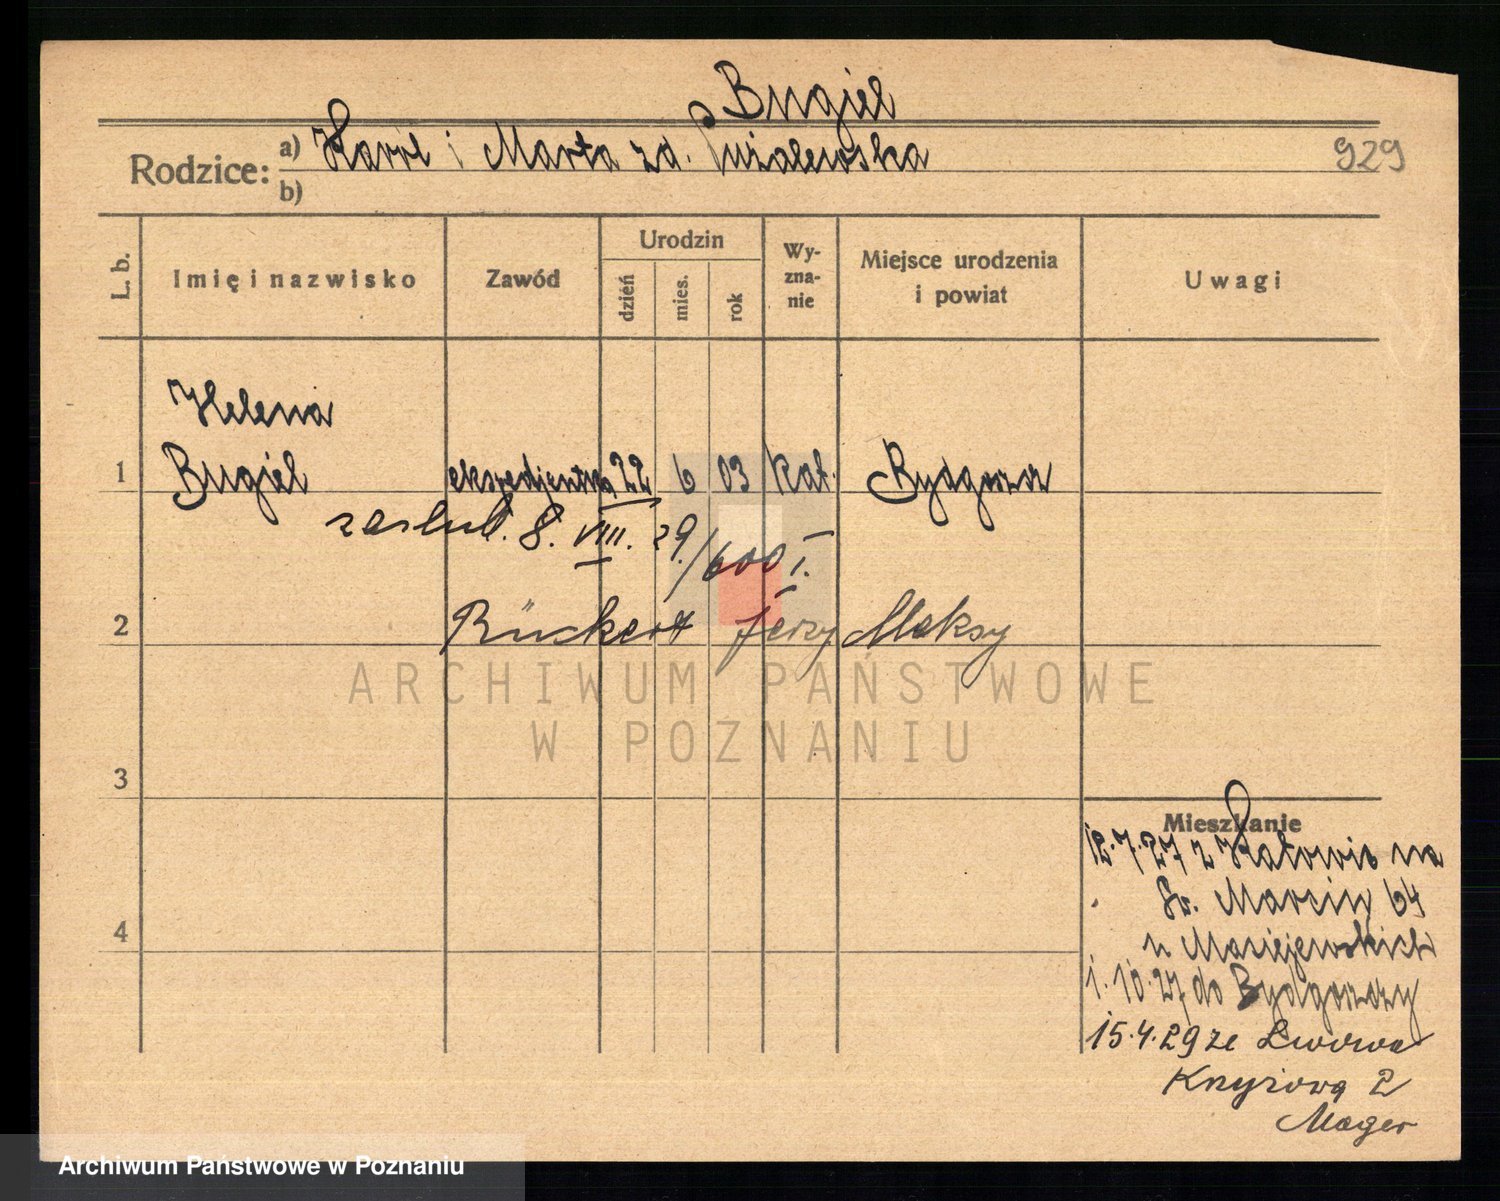 Bugiel
Rodzice: a) Karol i Marta zd. Puzalewska
929
b)
L. b. Imię i nazwisko Zawód Urodzin dzień mies. rok Wy-zna-nie Miejsce urodzenia i powiat Uwagi
Helena
1 Bugiel ekspedjentka 22 6 03 kat.
zaslub. 8. VIII. 29/600 I.
2 Rückert Jerzy Aleksy
ARCHIWUM PAŃSTWOWE
W POZNANIU
3
Mieszkanie
12.7.27 z Katowic na
Św. Marcin 64
4
u Maciejewskich
1.10.27 do Bydgoszczy
15.4.29 ze Lwowa
2
Mager
Archiwum Państwowe w Poznaniu